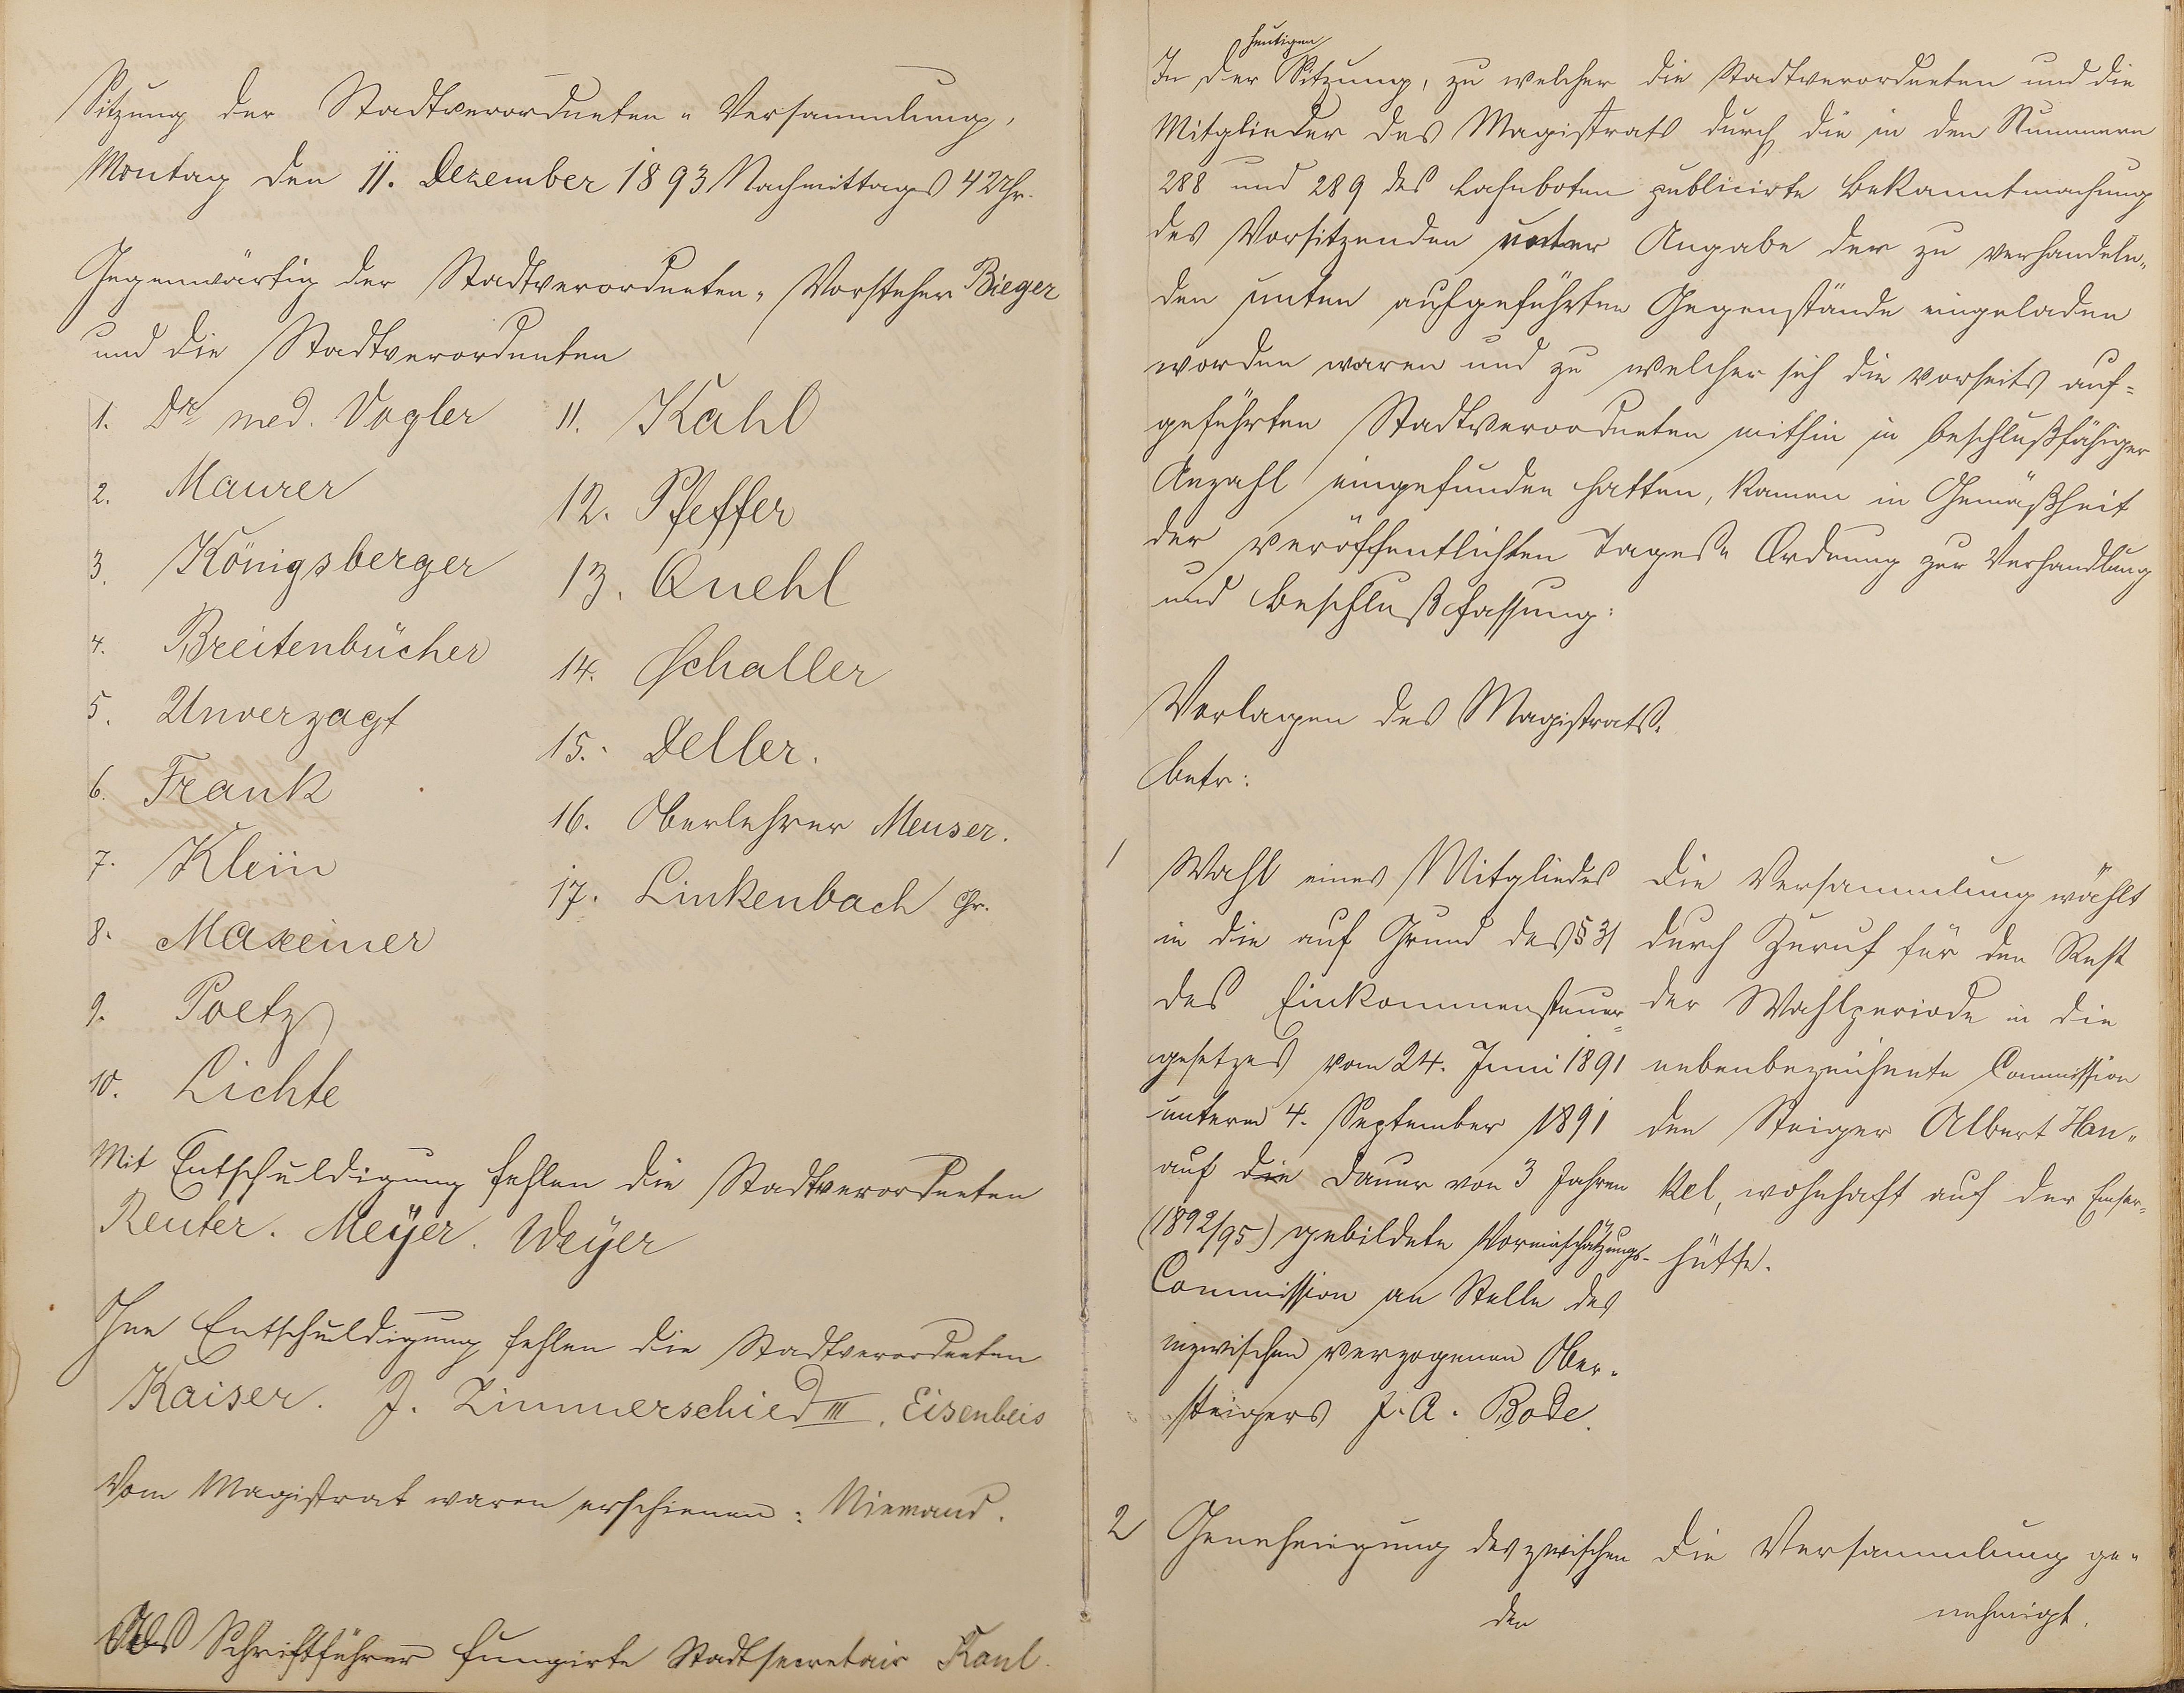 Sitzung der Stadtverordneten-Versammlung,
Montag den 11. Dezember 1893 Nachmittags 4 Uhr.
Gegenwärtig der Stadtverordneten-Vorsteher Bieger
und die Stadtverordneten
1. Dr med. Vogler
2. Maurer
3. Königsberger
4. Breitenbücher
5. Unverzagt
6. Frank
7. Klein
8. Maxeiner
9. Poetz
10. Lichte
11. Kahl
12. Pfeffer
13. Quehl
14. Schaller
15. Deller.
16. Oberlehrer Meuser.
17. Linkenbach Chr.
Mit Entschuldigung fehlen die Stadtverordneten
Reuter. Meyer. Weyer
Ohne Entschuldigung fehlen die Stadtverordneten
Kaiser. J. Zimmerschied III. Eisenbeis
Vom Magistrat waren erschienen: Niemand.
Als Schriftführer fungirte Stadtsecretair Kaul.
heutigen
In der Sitzung, zu welcher die Stadtverordneten und die
Mitglieder des Magistrats durch die in den Nummern
288 und 289 des Lahnboten publicirte Bekanntmachung
des Vorsitzenden unter Angabe der zu verhandeln-
den unten aufgeführten Gegenstände eingeladen
worden waren und zu welcher sich die vorseits auf-
geführten Stadtverordneten mithin in beschlußfähiger
Anzahl eingefunden hatten, kamen in Gemäßheit
der veröffentlichten Tages-Ordnung zur Verhandlung
und Beschlußfassung:
Vorlagen des Magistrats.
betr:
1
Wahl eines Mitgliedes
in die auf Grund des § 31
des Einkommensteuer-
gesetzes vom 24. Juni 1891
unterm 4. September 1891
auf die Dauer von 3 Jahren
(1892/95) gebildete Voreinschätzungs-
Commission an Stelle des
inzwischen verzogenen Ober-
steigers J. A. Bode.
Die Versammlung wählt
durch Zuruf für den Rest
der Wahlperiode in die
nebenbezeichnete Commission
den Steiger Albert Hen-
kel, wohnhaft auf der Emser-
hütte.
2
Genehmigung des zwischen
den
Die Versammlung ge-
nehmigt.